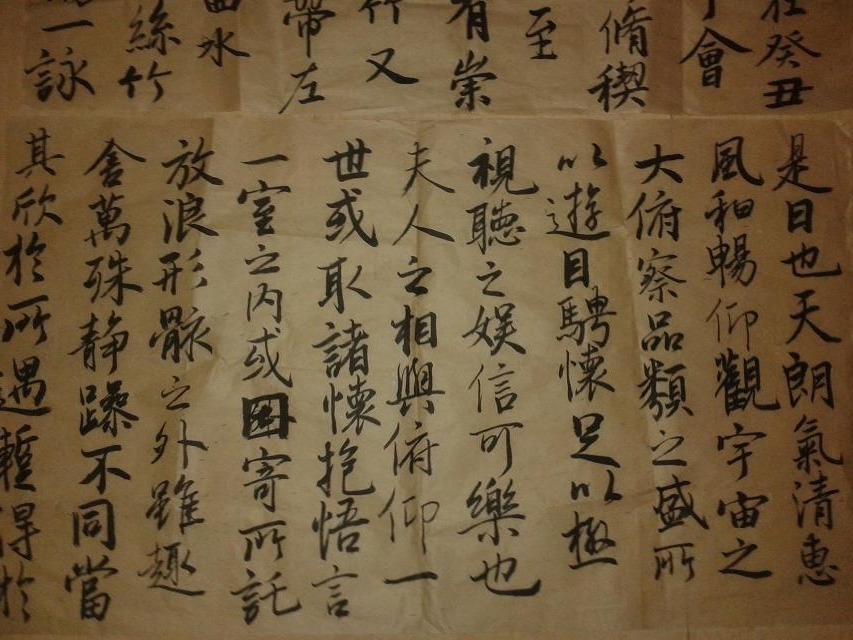 在癸丑
會
脩稧
至
有崇
竹又
帶左
曲水
絲竹
一詠
是日也天朗氣清惠
風和暢仰觀宇宙之
大俯察品類之盛所
以遊目騁懷足以極
視聽之娱信可樂也
夫人之相與俯仰一
世或取諸懷抱悟言
一室之内或因寄所託
放浪形骸之外雖趣
舍萬殊静躁不同當
其欣於所遇暫得於